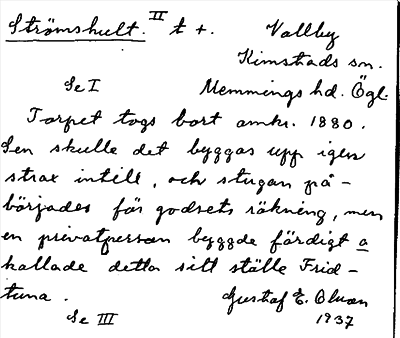 Strömshult. II t +. Vallby
Kimstads sn.
Se I Memmings hd. Ögl.
Torpet togs bort omkr. 1880.
Sen skulle det byggas upp igen
strax intill, och stugan på-
börjades för godsets räkning, men
en privatperson byggde färdigt o
kallade detta sitt ställe Frid-
tuna.
Gustaf E. Olson
Se III 1937